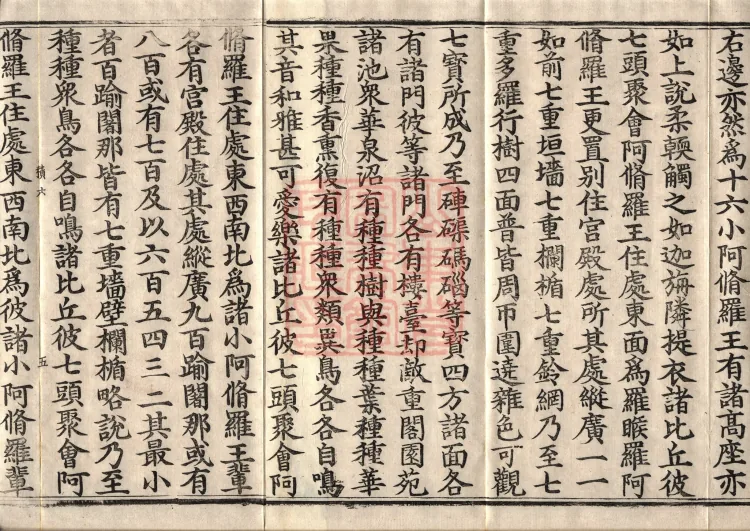 右邊亦然爲十六小阿脩羅王有諸髙座亦
如上說柔輭觸之如迦旃隣提衣諸比丘彼
七頭聚會阿脩羅王住處東面爲羅睺羅阿
脩羅王更置别住宫殿處所其處縱廣一一
如前七重垣墻七重欄楯七重鈴網乃至七
重多羅行樹四面普皆周帀圍遶雜色可觀
七寶所成乃至硨磲碼碯等寶四方諸面各
有諸門彼等諸門各有樓臺却敵重閣園苑
諸池衆華泉沼有種種樹與種種葉種種華
果種種香熏復有種種衆類異鳥各各自鳴
其音和雅甚可愛樂諸比丘彼七頭聚會阿
脩羅王住處東西南北爲諸小阿脩羅王輩
各有宫殿住處其處縱廣九百踰闍那或有
八百或有七百及以六百五四三二其最小
者百踰闍那皆有七重墻壁欄楯略說乃至
種種衆鳥各各自鳴諸比丘彼七頭聚會阿
積六
五
脩羅王住處東西南北爲彼諸小阿脩羅輩